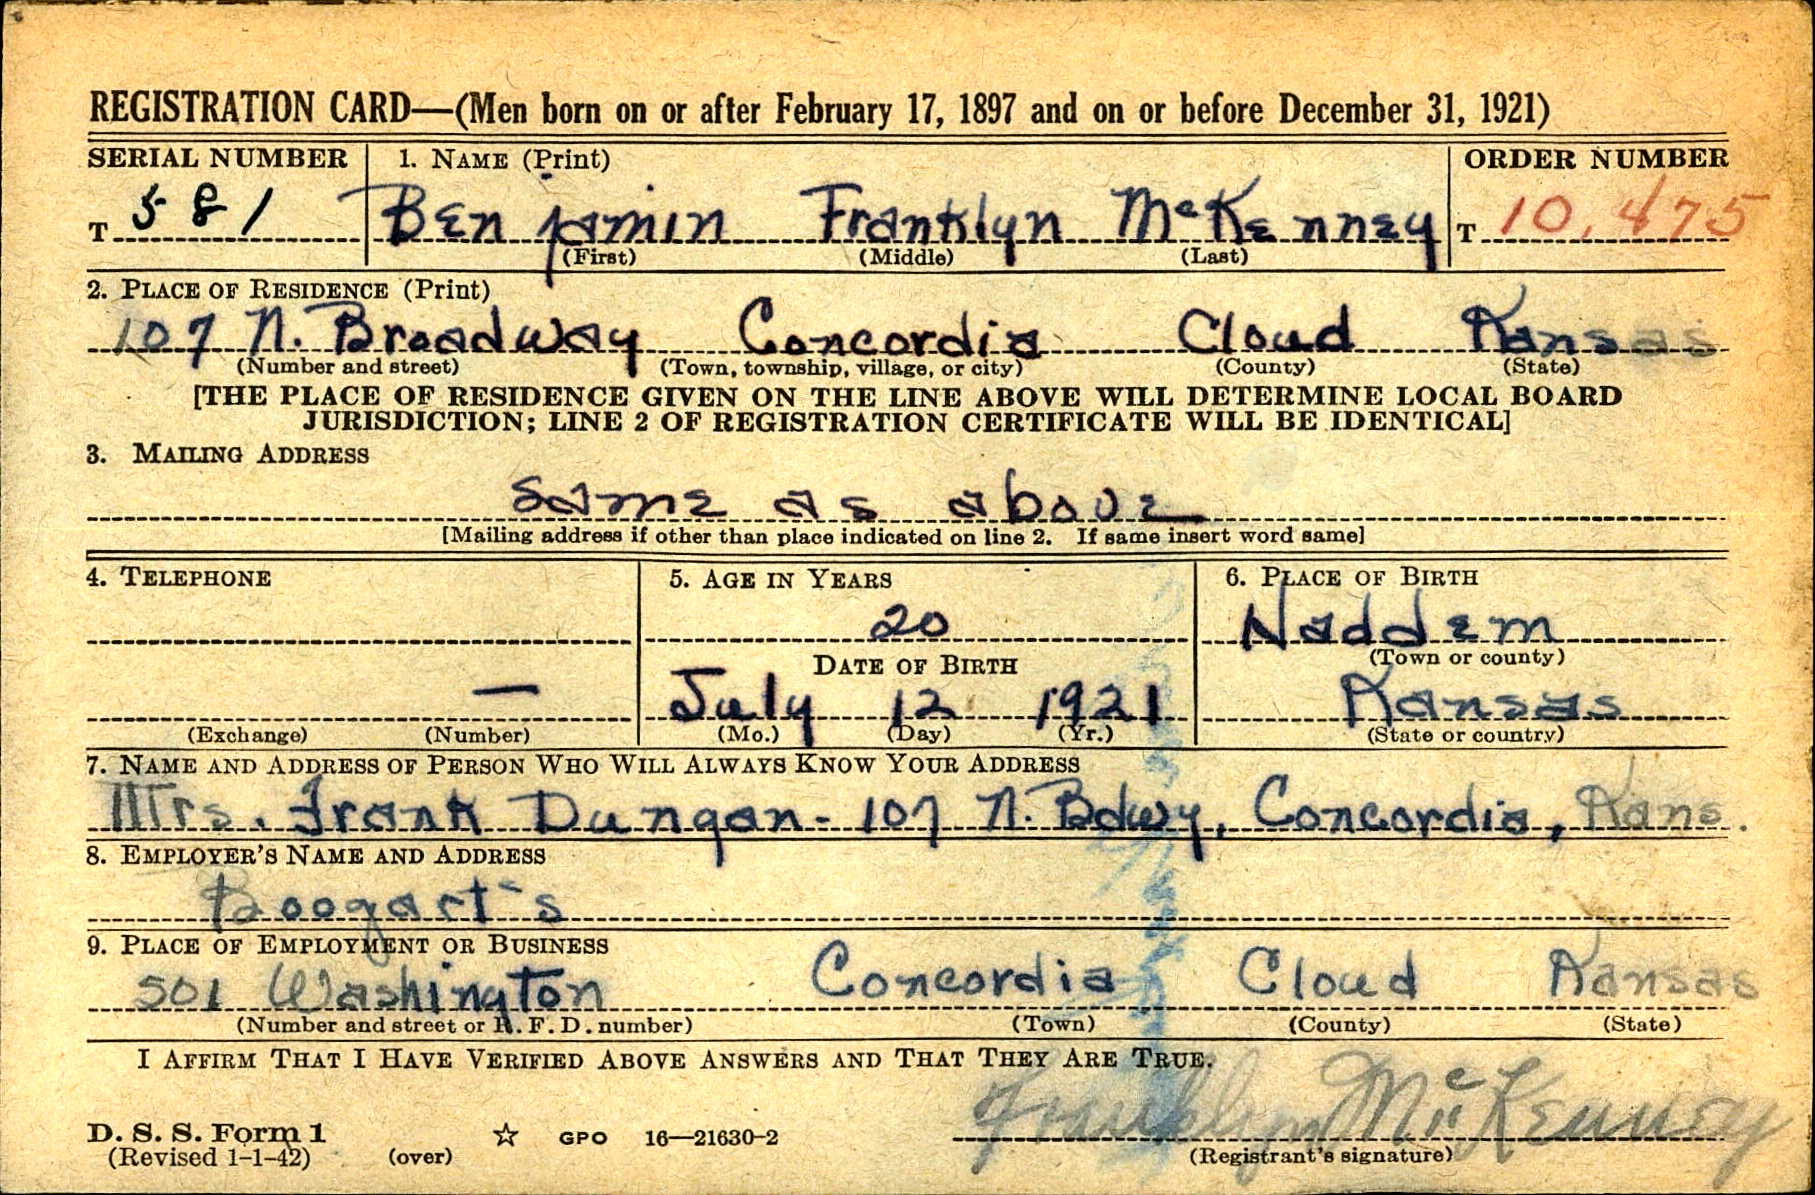 REGISTRATION CARD—(Men born on or after February 17, 1897 and on or before December 31, 1921)
SERIAL NUMBER 1. NAME (Print) ORDER NUMBER
T 581 Benjamin Franklyn McKenney T 10,475
(First) (Middle) (Last)
2. PLACE OF RESIDENCE (Print)
107 N. Broadway Concordia Cloud Kansas
(Number and street) (Town, township, village, or city) (County) (State)
[THE PLACE OF RESIDENCE GIVEN ON THE LINE ABOVE WILL DETERMINE LOCAL BOARD
JURISDICTION; LINE 2 OF REGISTRATION CERTIFICATE WILL BE IDENTICAL]
3. MAILING ADDRESS
Same as above
[Mailing address if other than place indicated on line 2. If same insert word same]
4. TELEPHONE 5. AGE IN YEARS 6. PLACE OF BIRTH
20 Naddem
DATE OF BIRTH (Town or county)
— July 12 1921 Kansas
(Exchange) (Number) (Mo.) (Day) (Yr.) (State or country)
7. NAME AND ADDRESS OF PERSON WHO WILL ALWAYS KNOW YOUR ADDRESS
Mrs. Frank Dungan - 107 N. Bdwy, Concordia, Kans.
8. EMPLOYER'S NAME AND ADDRESS
Boogart's
9. PLACE OF EMPLOYMENT OR BUSINESS
501 Washington Concordia Cloud Kansas
(Number and street or R. F. D. number) (Town) (County) (State)
I AFFIRM THAT I HAVE VERIFIED ABOVE ANSWERS AND THAT THEY ARE TRUE.
Franklyn McKenney
D. S. S. Form 1
(Revised 1-1-42) (over) ☆ GPO 16—21630-2 (Registrant's signature)